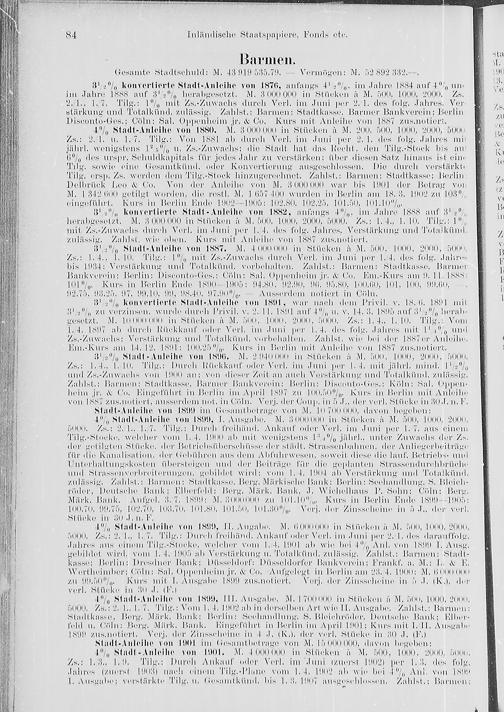 84 Inländische Staatspapiere, Fonds etc.
Barmen.
Gesamte Stadtschuld: M. 43 919 535.79. — Vermögen: M. 52 892 332.—.
3½% konvertierte Stadt-Anleihe von 1876, anfangs 4½%, im Jahre 1884 auf 4% un-
im Jahre 1888 auf 3½% herabgesetzt. M. 3 000 000 in Stücken à M. 500, 1000, 2000. Zs.
2./1., 1./7. Tilg.: 1% mit Zs.-Zuwachs durch Verl. im Juni per 2./1. des folg. Jahres. Ver-
stärkung und Totalkünd. zulässig. Zahlst.: Barmen: Stadtkasse, Barmer Bankverein; Berlin
Disconto-Ges.; Cöln: Sal. Oppenheim jr. & Co. Kurs mit Anleihe von 1887 zus.notiert.
4% Stadt-Anleihe von 1880. M. 3 000 000 in Stücken à M. 200, 500, 1000, 2000, 5000.
Zs.: 2./1. u. 1./7. Tilg.: Von 1881 ab durch Verl. im Juni per 2./1. des folg. Jahres mit
jährl. wenigstens 1% u. Zs.-Zuwachs; die Stadt hat das Recht, den Tilg.-Stock bis auf
6% des urspr. Schuldkapitals für jedes Jahr zu verstärken; über diesen Satz hinaus ist eine
Tilg. sowie eine Gesamtkünd. oder Konvertierung ausgeschlossen. Die durch verstärkte
Tilg. ersp. Zs. werden dem Tilg.-Stock hinzugerechnet. Zahlst.: Barmen: Stadtkasse; Berlin
Delbrück Leo & Co. Von der Anleihe von M. 3 000 000 war bis 1901 der Betrag von
M. 1 342 600 getilgt worden, die restl. M. 1 657 400 wurden in Berlin am 18./3. 1902 zu 103%
eingeführt. Kurs in Berlin Ende 1902—1905: 102.80, 102.25, 101.50, 101.10%.
3½% konvertierte Stadt-Anleihe von 1882, anfangs 4%, im Jahre 1888 auf 3½%
herabgesetzt. M. 3 000 000 in Stücken à M. 500, 1000, 2000, 5000. Zs.: 1./4., 1./10. Tilg.: 1%
mit Zs.-Zuwachs durch Verl. im Juni per 1./4. des folg. Jahres, Verstärkung und Totalkünd.
zulässig. Zahlst. wie oben. Kurs mit Anleihe von 1887 zus.notiert.
3½% Stadt-Anleihe von 1887. M. 4 000 000 in Stücken à M. 500, 1000, 2000, 5000.
Zs.: 1./4., 1./10. Tilg.: 1% mit Zs.-Zuwachs durch Verl. im Juni per 1./4. des folg. Jahres
bis 1934; Verstärkung und Totalkünd. vorbehalten. Zahlst.: Barmen: Stadtkasse, Barmer
Bankverein; Berlin: Disconto-Ges.; Cöln: Sal. Oppenheim jr. & Co. Em.-Kurs am 9./11. 1888
101%. Kurs in Berlin Ende 1890—1905: 94.80, 92.90, 96, 95.80, 100.60, 101, 100, 99.60, —,
92.75, 93.25, 97, 99.10, 99, 98.40, 97.90%. — Ausserdem notiert in Cöln.
3½% konvertierte Stadt-Anleihe von 1891, war nach dem Privil. v. 18./6. 1891 mit
3½% zu verzinsen, wurde durch Privil. v. 2./11. 1891 auf 4% u. v. 14./3. 1895 auf 3½% herab-
gesetzt. M. 10 000 000 in Stücken à M. 500, 1000, 2000, 5000. Zs.: 1./4., 1./10. Tilg.: Vom
1./4. 1897 ab durch Rückkauf oder Verl. im Juni per 1./4. des folg. Jahres mit 1½% und
Zs.-Zuwachs; Verstärkung und Totalkünd. vorbehalten. Zahlst. wie bei der 1887er Anleihe.
Em.-Kurs am 14./12. 1891: 100.25%. Kurs in Berlin mit Anleihe von 1887 zus.notiert.
3½% Stadt-Anleihe von 1896. M. 2 940 000 in Stücken à M. 500, 1000, 2000, 5000.
Zs.: 1./4., 1./10. Tilg.: Durch Rückkauf oder Verl. im Juni per 1./4. mit jährl. mind. 1½%
und Zs.-Zuwachs von 1900 an; von dieser Zeit an auch Verstärkung und Totalkünd. zulässig.
Zahlst.: Barmen: Stadtkasse, Barmer Bankverein; Berlin: Disconto-Ges.; Köln: Sal. Oppen-
heim jr. & Co. Eingeführt in Berlin im April 1897 zu 100.50%. Kurs in Berlin mit Anleihe
von 1887 zus.notiert, ausserdem not. in Cöln. Verj. der Coup. in 5 J., der verl. Stücke in 30 J. n. F.
Stadt-Anleihe von 1899 im Gesamtbetrage von M. 10 700 000, davon begeben:
4% Stadt-Anleihe von 1899, I. Ausgabe. M. 3 000 000 in Stücken à M. 500, 1000, 2000,
5000. Zs.: 2./1., 1./7. Tilg.: Durch freihänd. Ankauf oder Verl. im Juni per 1./7. aus einem
Tilg.-Stocke, welcher vom 1./4. 1900 ab mit wenigstens 1½% jährl. unter Zuwachs der Zs.
der getilgten Stücke, der Betriebsüberschüsse der städt. Strassenbahnen, der Anliegerbeiträge
für die Kanalisation, der Gebühren aus dem Abfuhrwesen, soweit diese die lauf. Betriebs- und
Unterhaltungskosten übersteigen und der Beiträge für die geplanten Strassendurchbrüche
und Strassenverbreiterungen, gebildet wird; vom 1./4. 1904 ab Verstärkung und Totalkünd.
zulässig. Zahlst.: Barmen: Stadtkasse, Berg. Märkische Bank; Berlin: Seehandlung, S. Bleich-
röder, Deutsche Bank; Elberfeld: Berg. Märk. Bank, J. Wichelhaus P. Sohn; Cöln: Berg.
Märk. Bank. Aufgel. 3./7. 1899: M. 3 000 000 zu 101.10%. Kurs in Berlin Ende 1899—1905:
100.70, 99.75, 102.70, 103.70, 101.80, 101.50, 101.30%. Verj. der Zinsscheine in 5 J., der verl.
Stücke in 30 J. n. F.
4% Stadt-Anleihe von 1899, II. Ausgabe. M. 6 000 000 in Stücken à M. 500, 1000, 2000,
5000. Zs.: 2./1., 1./7. Tilg.: Durch freihänd. Ankauf oder Verl. im Juni per 2./1. des darauffolg.
Jahres aus einem Tilg.-Stocke, welcher vom 1./4. 1901 ab wie bei 4% Anl. von 1899 I. Ausg.
gebildet wird, vom 1./4. 1905 ab Verstärkung u. Totalkünd. zulässig. Zahlst.: Barmen: Stadt-
kasse; Berlin: Dresdner Bank; Düsseldorf: Düsseldorfer Bankverein; Frankf. a. M.: L. & E.
Wertheimber; Cöln: Sal. Oppenheim jr. & Co. Aufgelegt in Berlin am 23./4. 1900: M. 6 000 000
zu 99.50%. Kurs mit I. Ausgabe von 1899 zus.notiert. Verj. der Zinsscheine in 5 J. (K.), der
verl. Stücke in 30 J. (F.)
4% Stadt-Anleihe von 1899, III. Ausgabe. M. 1 700 000 in Stücken à M. 500, 1000, 2000,
5000. Zs.: 2./1., 1./7. Tilg.: Vom 1./4. 1902 ab in derselben Art wie II. Ausgabe. Zahlst.: Barmen:
Stadtkasse, Berg. Märk. Bank; Berlin: Seehandlung, S. Bleichröder, Deutsche Bank; Elber-
feld u. Cöln: Berg. Märk. Bank. Eingeführt in Berlin im April 1901; Kurs mit I./II. Ausgabe
1899 zus.notiert. Verj. der Zinsscheine in 4 J. (K.), der verl. Stücke in 30 J. (F.)
Stadt-Anleihe von 1901 im Gesamtbetrage von M. 15 000 000, davon begeben:
4% Stadt-Anleihe von 1901. M. 4 000 000 in Stücken à M. 500, 1000, 2000, 5000.
Zs.: 1./3., 1./9. Tilg.: Durch Ankauf oder Verl. im Juni (zuerst 1902) per 1./3. des folg.
Jahres (zuerst 1903) nach einem Tilg.-Plane vom 1./4. 1902 ab wie bei 4% Anl. von 1899
I. Ausgabe; verstärkte Tilg. u. Gesamtkünd. bis 1./3. 1907 ausgeschlossen. Zahlst.: Barmen: